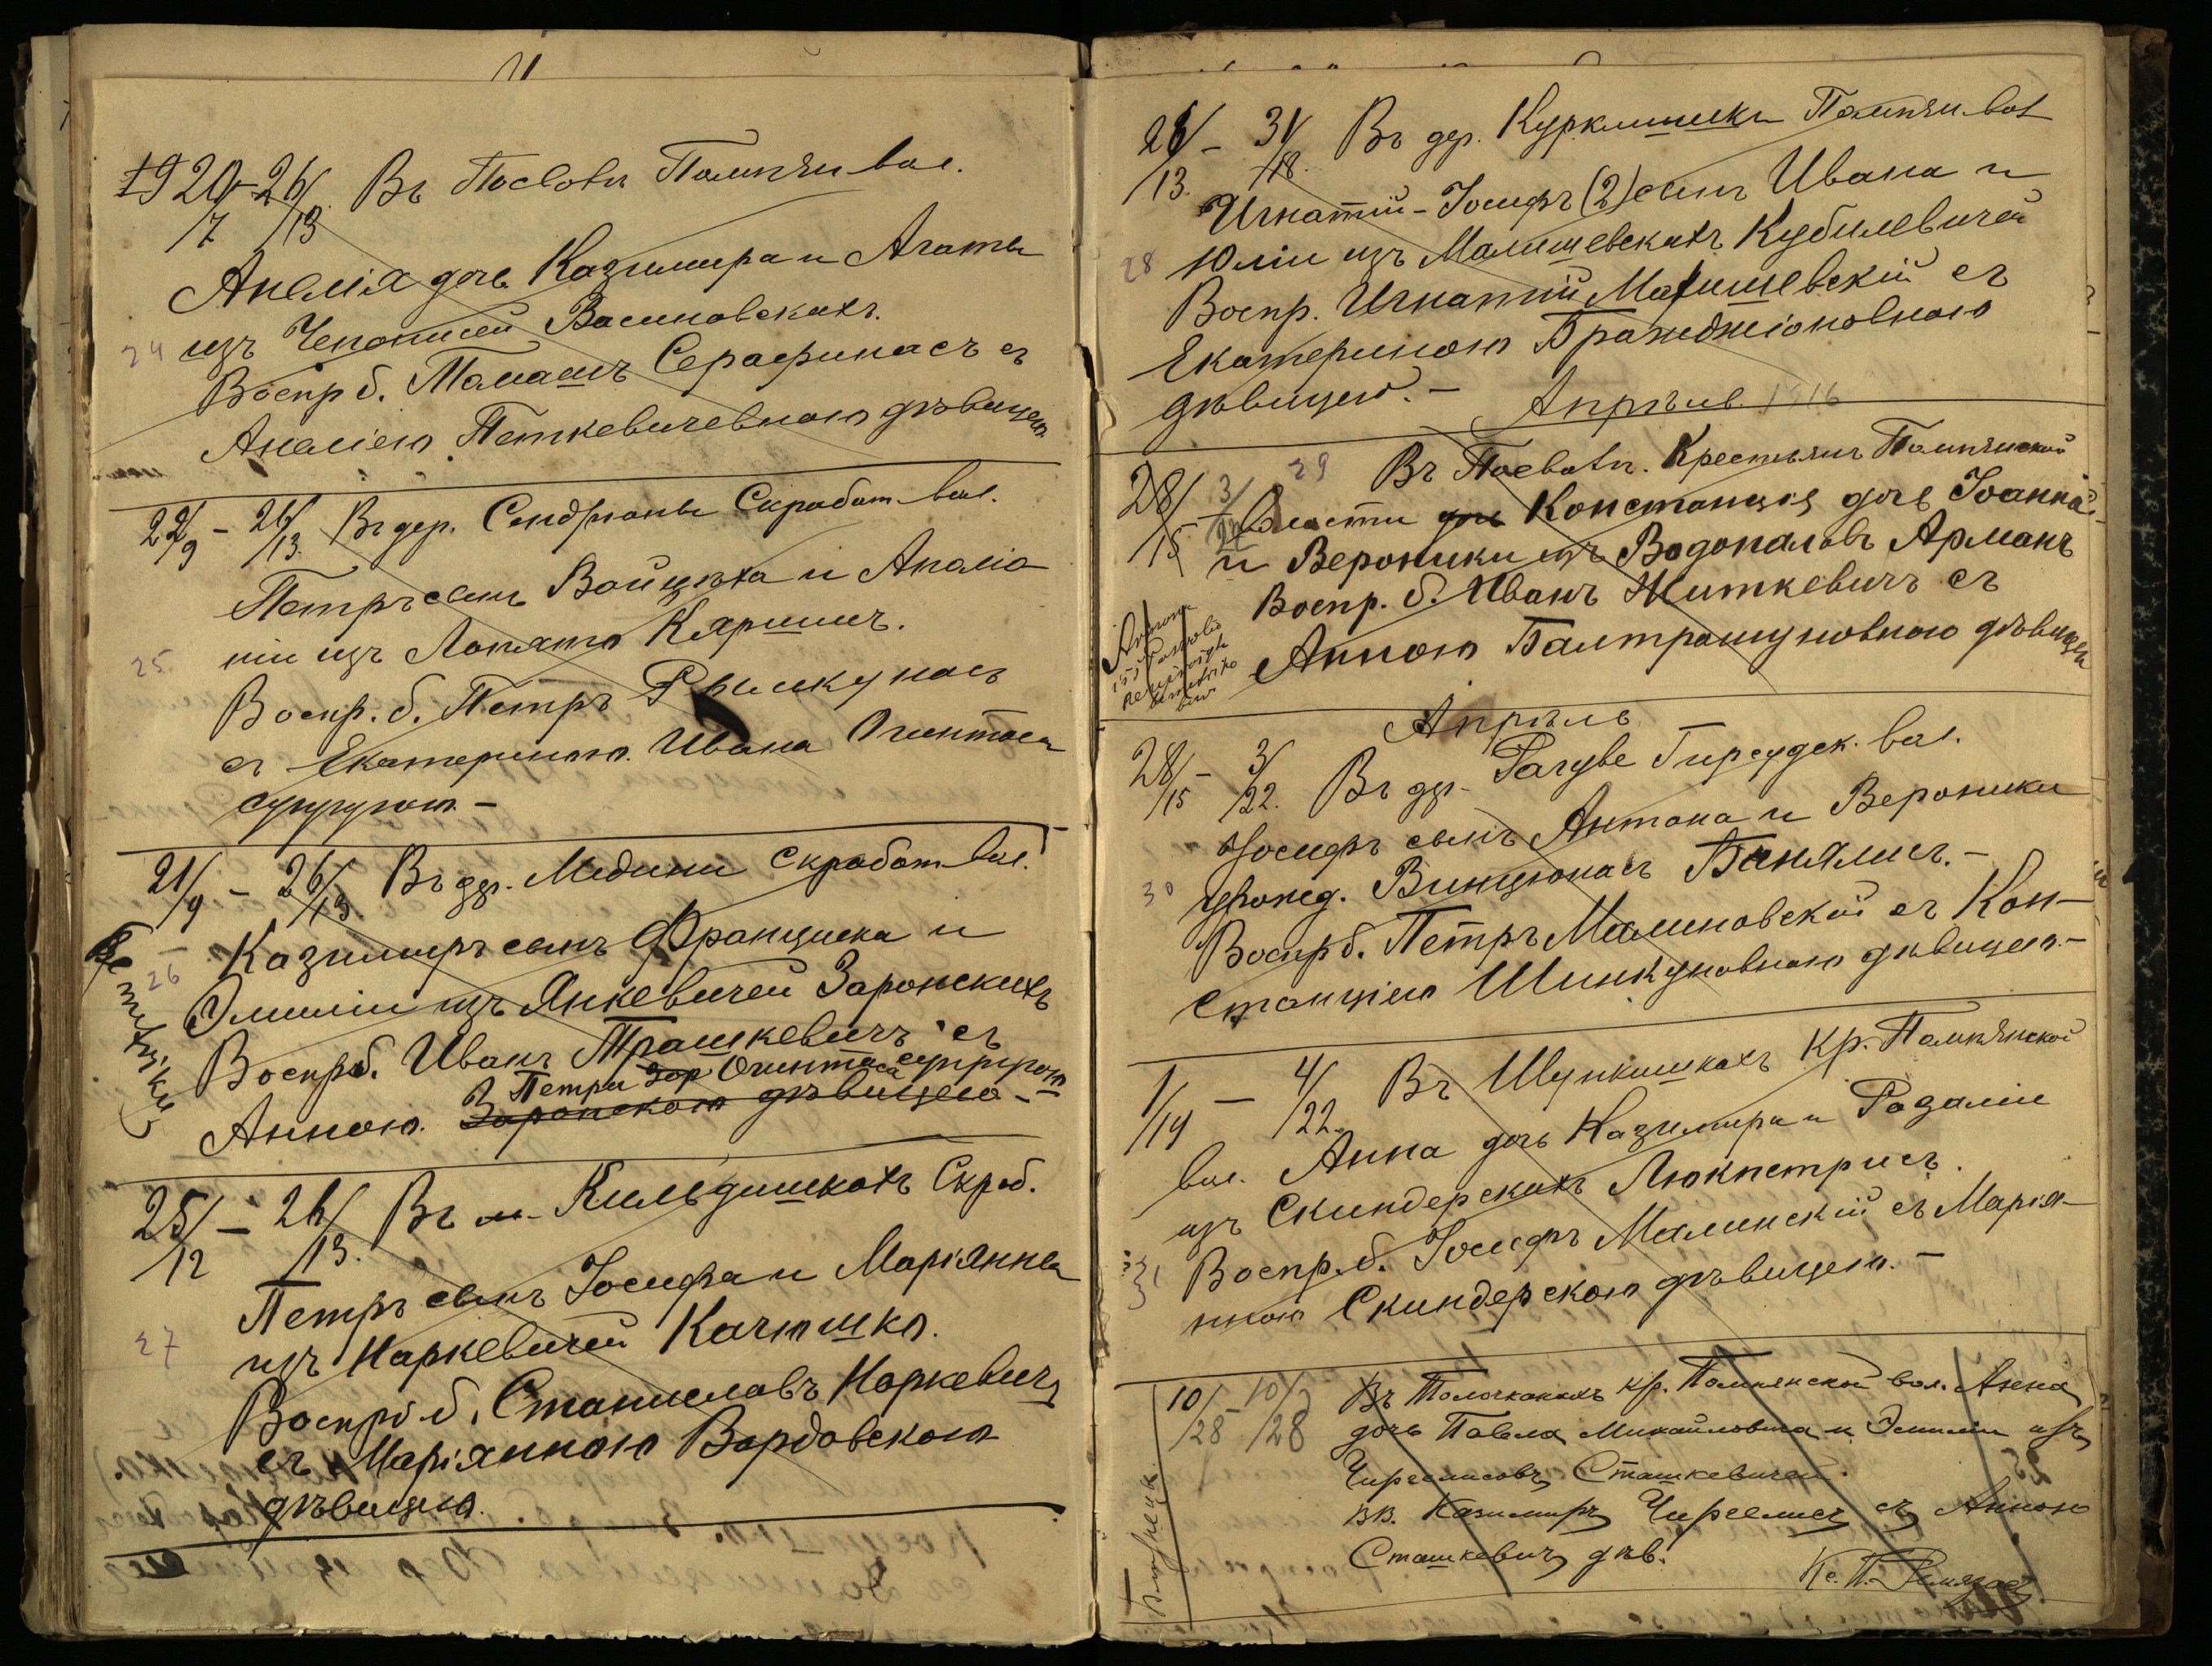 19 20/7 - 26/13. Въ Посволѣ Помпян. вол.
Анелія дочь Казимира и Агаты
изъ Чепонисей Васиновскихъ.
24
Воспр. б. Томашъ Серафинасъ съ
Анеліею Петкевичевною дѣвицею.
22/9 - 26/13. Въ дер. Сендрюны Скробот. вол.
Петръ сынъ Войцѣха и Аполо
ніи изъ Лопято Кяришисъ.
25
Воспр. б. Петръ
съ Екатериною Ивана Огинтаса
супругою. -
21/9 - 26/13. Въ дер. Медики Скробот. вол.
26 Казимиръ сынъ Франциска и
Эмиліи изъ Янкевичей Заронскихъ
Воспр. б. Иванъ Трашкевичъ съ
Петра Зар Огинтаса супругою
Анною Заронскою дѣвицею. -
25/12 - 26/13. Въ м. Кильдишкахъ Скроб.
Петръ сынъ Іосифа и Маріянны
27 изъ Наркевичей Качюшко.
Воспр. б. Станиславъ Норкевичъ
съ Маріянною Вордовскою
дѣвицею.
26/13. - 31/18. Въ дер. Курклишки Помпян. вол
Игнатій-Іосифъ (2) сынъ Ивана и
28 Юліи изъ Малишевскихъ Кубилевичей
Воспр. Игнатій Малишевскій съ
Екатериною Бражджіоновною
дѣвицею. -
Апрѣль 1916
28/15 - 3/22 29 Въ Посволѣ. Крестьянъ Помпянской
волости дочь Констанція дочь Іоанна
и Вероники изъ Водопаловъ Арманъ
Воспр. б. Иванъ Житкевичъ съ
Анною Балтрашуновною дѣвицею
Апрѣль
28/15 - 3/22. Въ дер. Рагуве Гирсудск. вол.
Іосифъ сынъ Антона и Вероники
30 урожд. Винцюнасъ Банялисъ. -
Воспр. б. Петръ Малиновскій съ Кон-
станціею Шинкуновною дѣвицею. -
1/14 - 4/22. Въ Шункишкахъ Кр. Помпянской
вол. Анна дочь Казимира и Розаліи
изъ Скиндерскихъ Люкпетрисъ.
31 Воспр. б. Іосифъ Малинскій съ Марія-
нною Скиндерскою дѣвицею. -
10/28 - 10/28 Въ Толочканахъ кр. Помпянской вол. Анна
дочь Павла Михайловича и Эмиліи изъ
Чирвелисовъ Сташкевичей.
ВВ. Казимиръ Чирвелисъ съ Анною
Сташкевичъ дѣв.